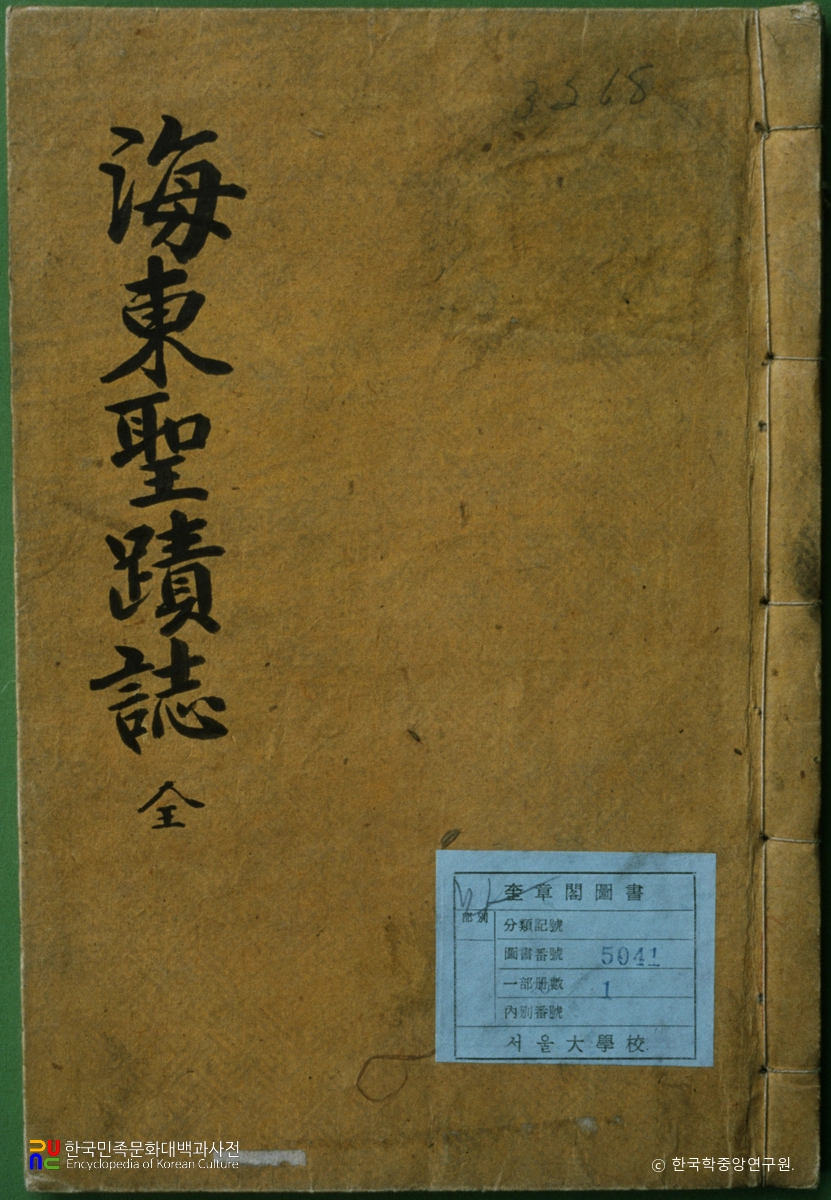 海東聖蹟誌 全
3268
奎章閣圖書
部別
分類記號
圖書番號 5041
一部册數 1
內別番號
서울大學校
한국민족문화대백과사전
Encyclopedia of Korean Culture
© 한국학중앙연구원.